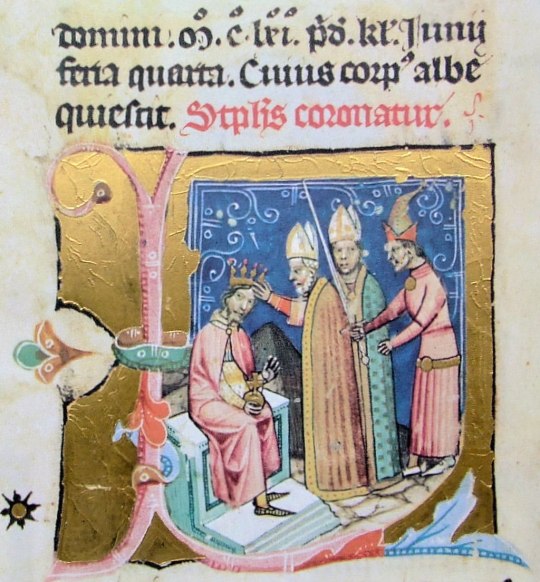 domini .mͦ. cͦ. lxͦiͦ. pͥd. kl'. Junij
feria quarta. Cuius corpꝰ albe
quiescit. Stphs coronatur.